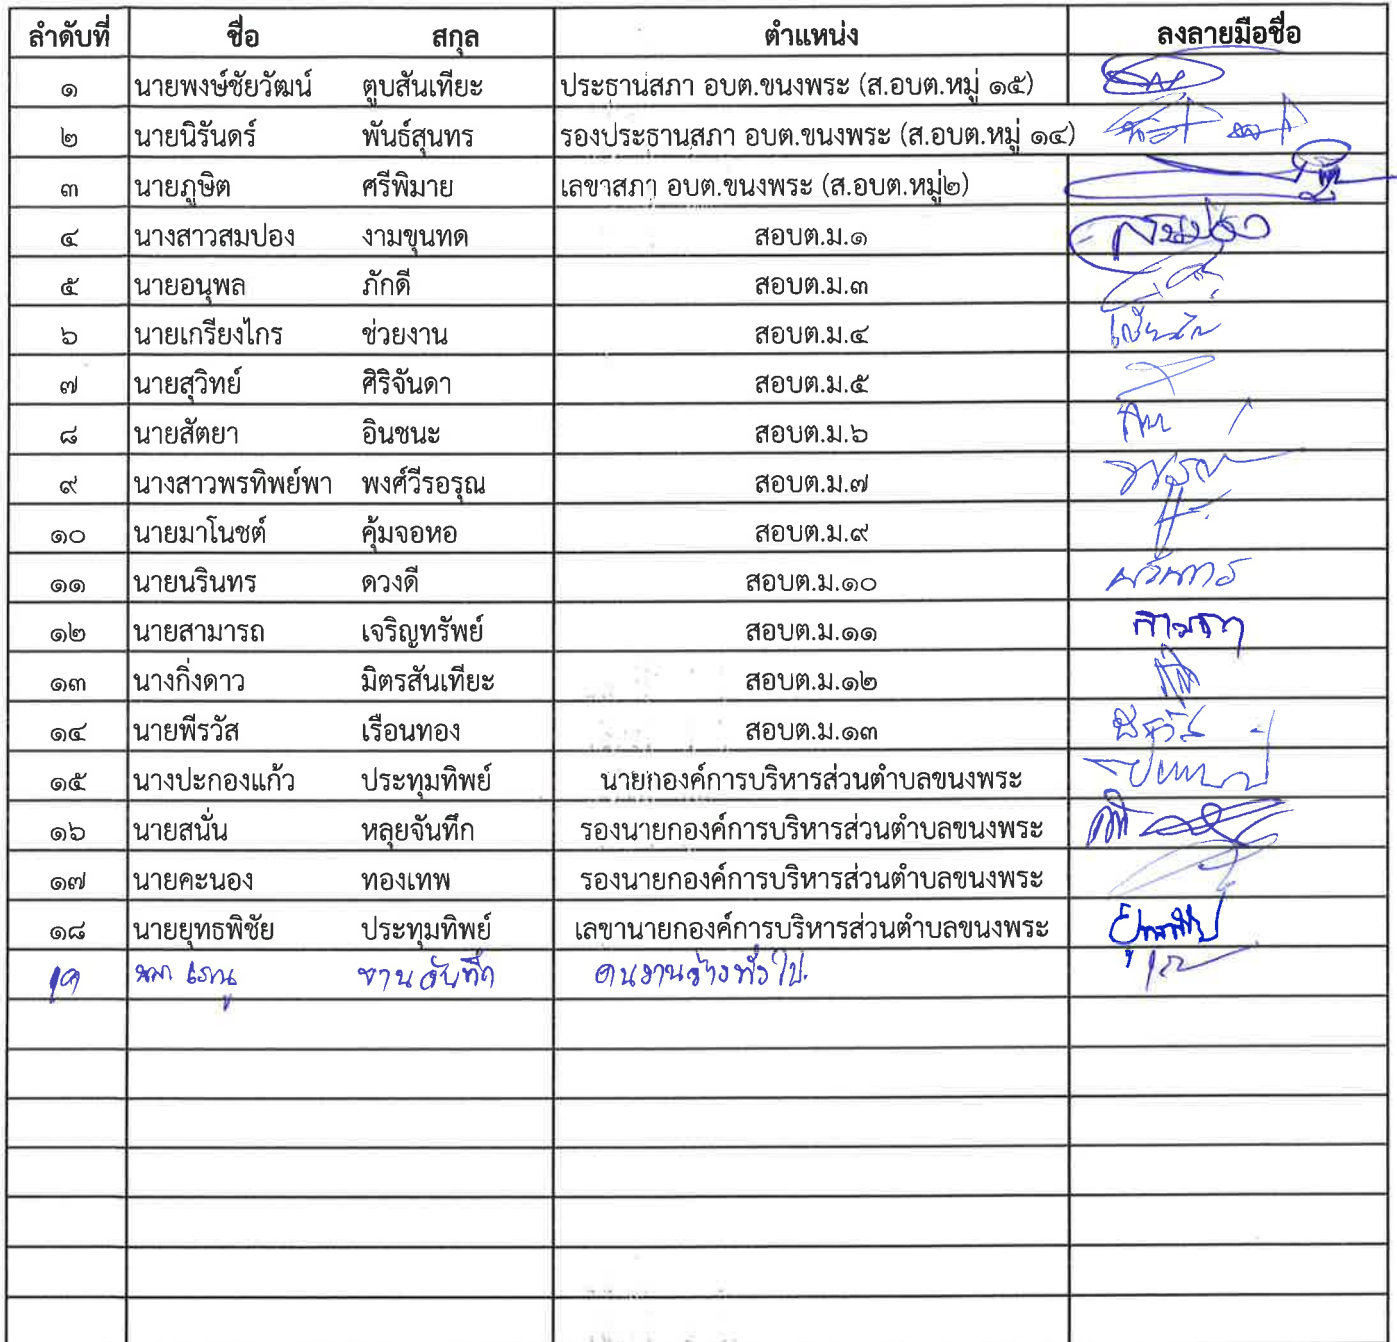 ลำดับที่ ชื่อ สกุล ตำแหน่ง ลงลายมือชื่อ
๑ นายพงษ์ชัยวัฒน์ ตูบสันเทียะ ประธานสภา อบต.ขนงพระ (ส.อบต.หมู่ ๑๕)
๒ นายนิรันดร์ พันธ์สุนทร รองประธานสภา อบต.ขนงพระ (ส.อบต.หมู่ ๑๔)
๓ นายภูษิต ศรีพิมาย เลขาสภา อบต.ขนงพระ (ส.อบต.หมู่๒)
๔ นางสาวสมปอง งามขุนทด สอบต.ม.๑ สมปอง
๕ นายอนุพล ภักดี สอบต.ม.๓
๖ นายเกรียงไกร ช่วยงาน สอบต.ม.๔
๗ นายสุวิทย์ ศิริจันดา สอบต.ม.๕
๘ นายสัตยา อินชนะ สอบต.ม.๖
๙ นางสาวพรทิพย์พา พงศ์วีรอรุณ สอบต.ม.๗
๑๐ นายมาโนชต์ คุ้มจอหอ สอบต.ม.๙
๑๑ นายนรินทร ดวงดี สอบต.ม.๑๐ นรินทร
๑๒ นายสามารถ เจริญทรัพย์ สอบต.ม.๑๑ สามารถ
๑๓ นางกิ่งดาว มิตรสันเทียะ สอบต.ม.๑๒
๑๔ นายพีรวัส เรือนทอง สอบต.ม.๑๓ พีรวัส
๑๕ นางปะกองแก้ว ประทุมทิพย์ นายกองค์การบริหารส่วนตำบลขนงพระ
๑๖ นายสนั่น หลุยจันทึก รองนายกองค์การบริหารส่วนตำบลขนงพระ
๑๗ นายคะนอง ทองเทพ รองนายกองค์การบริหารส่วนตำบลขนงพระ
๑๘ นายยุทธพิชัย ประทุมทิพย์ เลขานายกองค์การบริหารส่วนตำบลขนงพระ
19 คนงานจ้างทั่วไป.